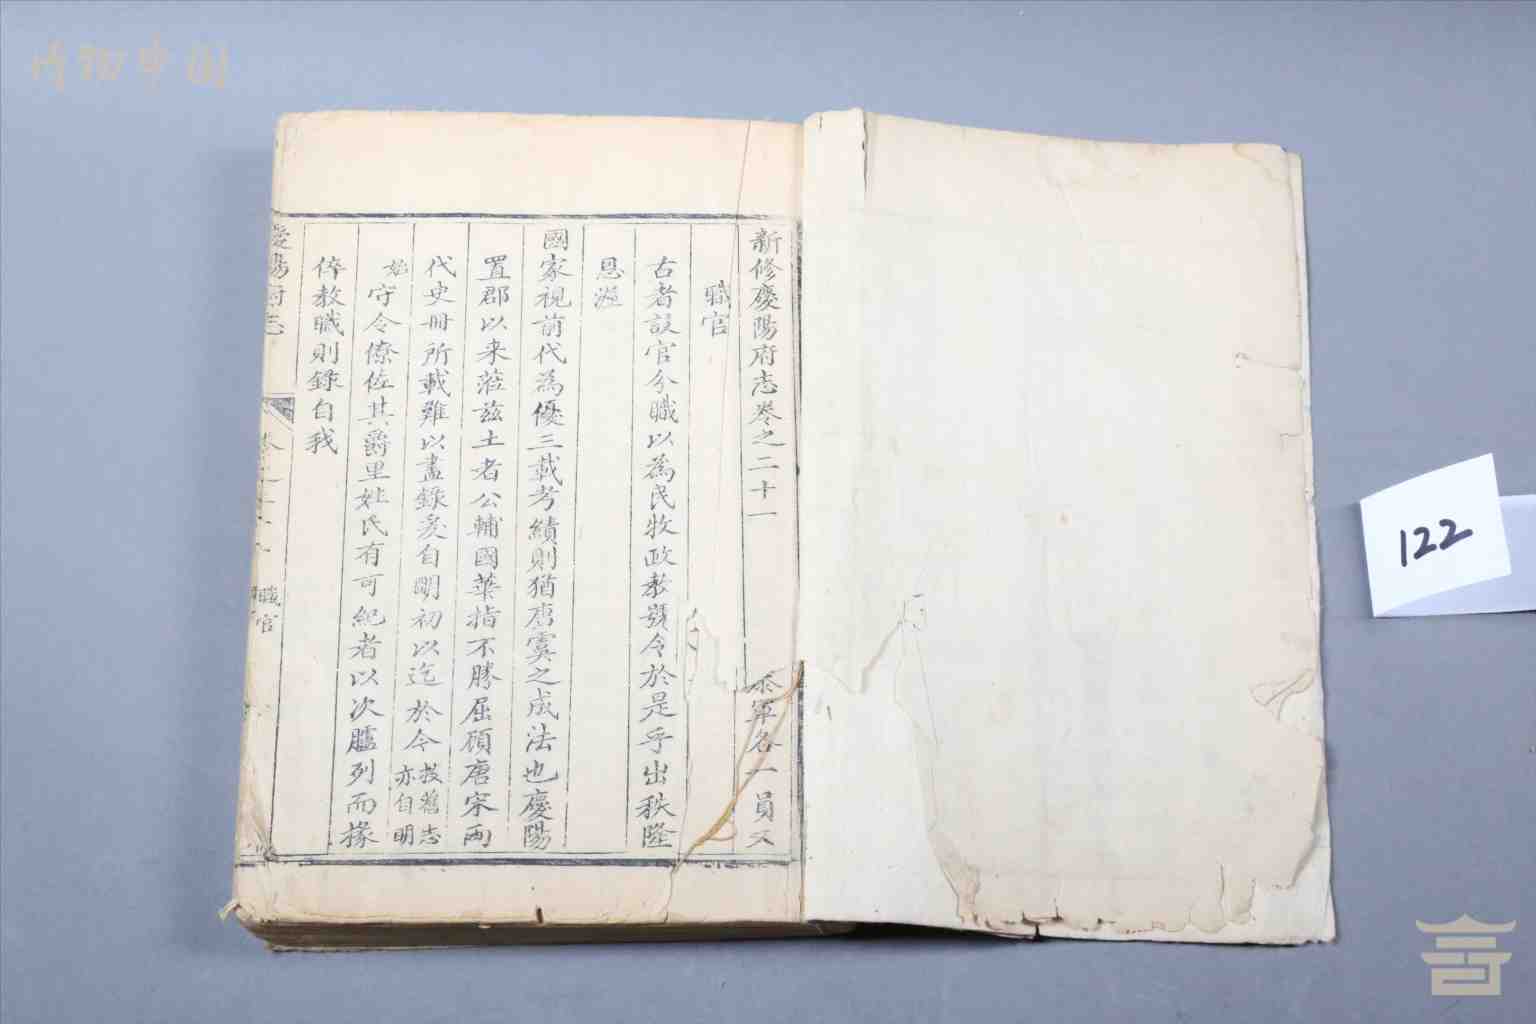 新修慶陽府志卷之二十一
軍各一員又
職官
古者設官分職以為民牧政教號令於是乎出秩隆
恩渥
國家視前代為優三載考績則猶唐虞之成法也慶陽
置郡以来蒞兹土者公輔國華指不勝屈碩唐宋兩
代史冊所載難以盡錄爰自明初以迄於今按舊志亦自明
始守令僚佐其爵里姓氏有可紀者以次臚列而掾
倅教職則錄自我
慶陽府志
職官
122
博物中国